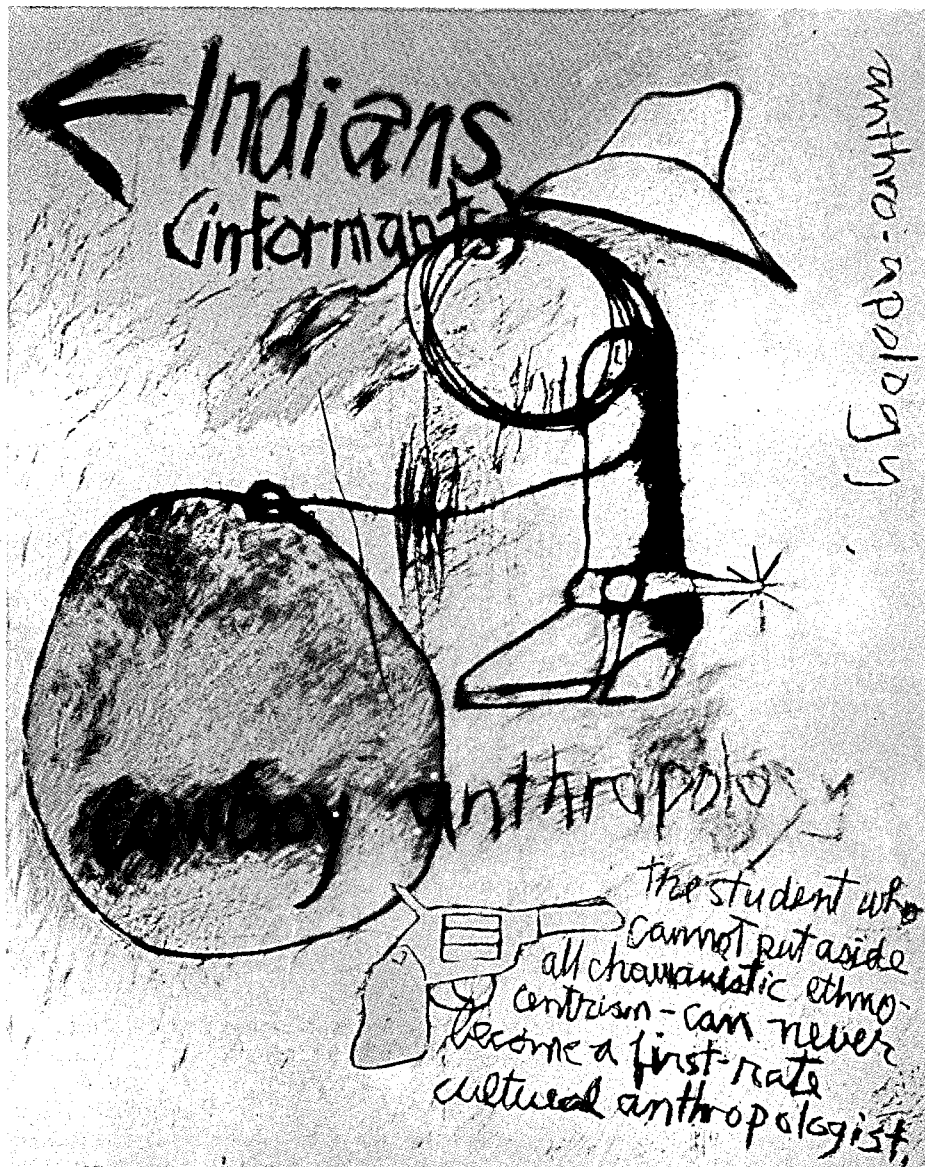 Indians
(informants)
anthro-apology
cowboy anthropolo
the student who
cannot put aside
all chauvanistic ethno-
centrism - can never
become a first-rate
cultural anthropologist.